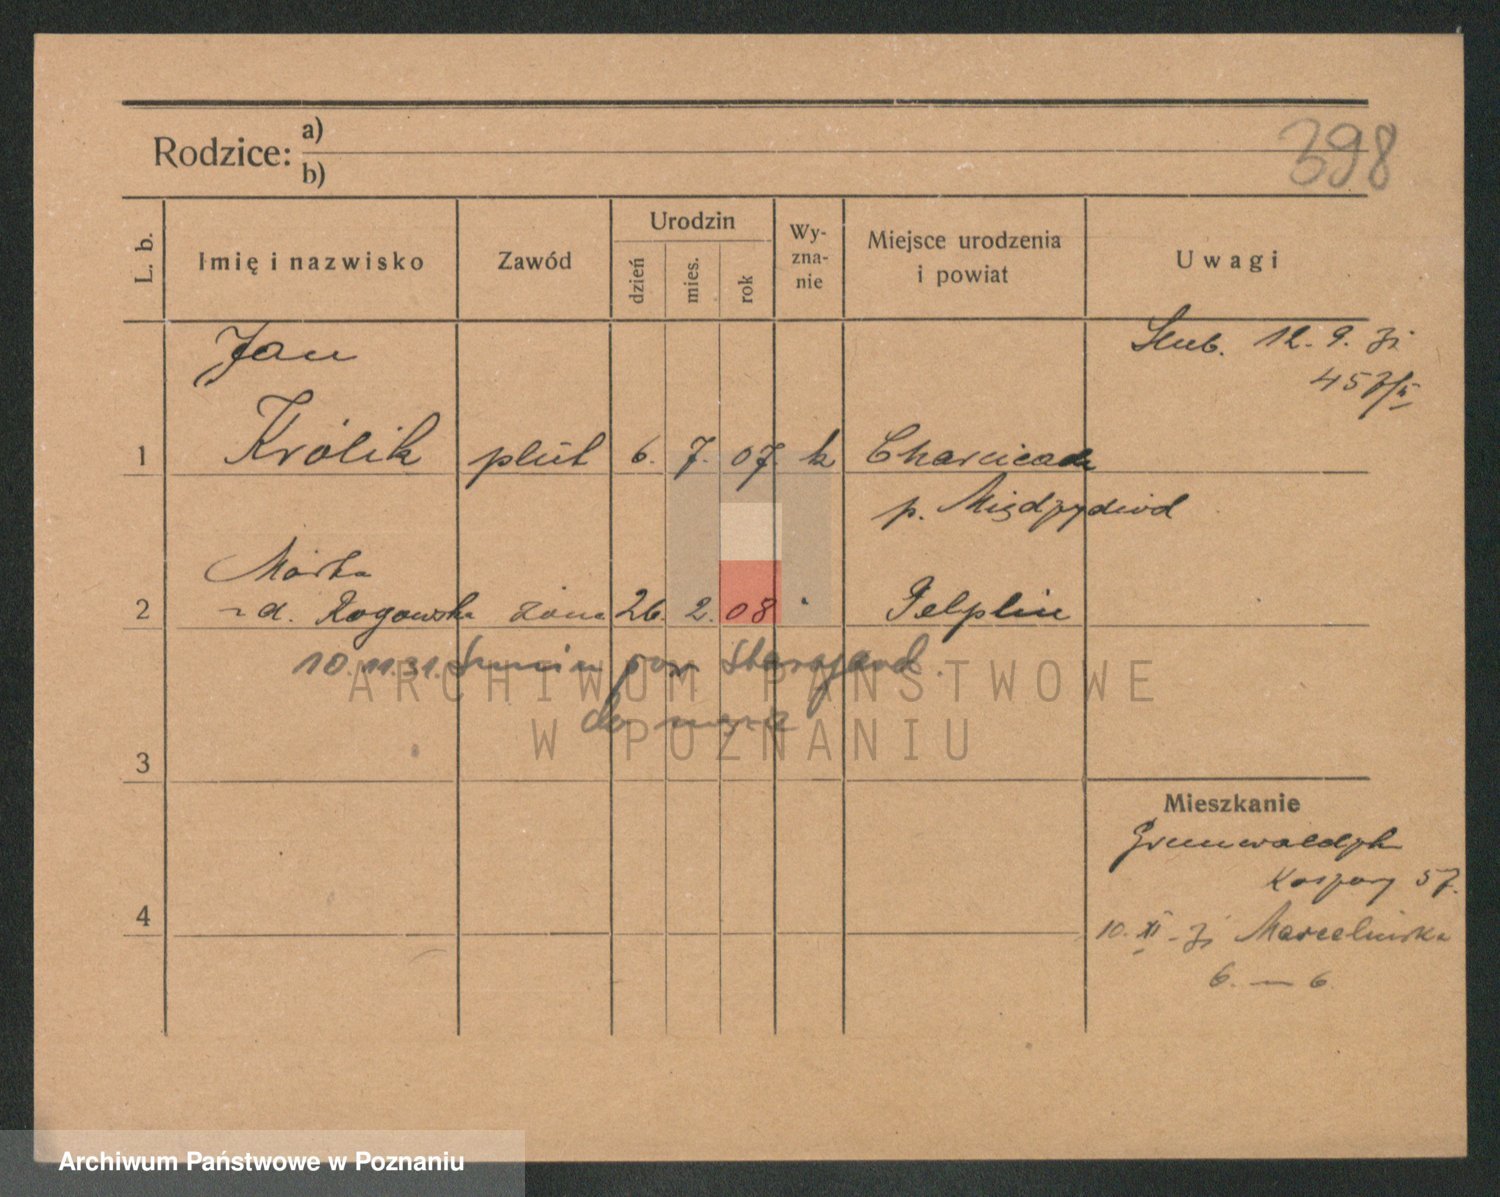 Rodzice: a)
b)
398
L. b.
Imię i nazwisko
Zawód
Urodzin
dzień
mies.
rok
Wy-
zna-
nie
Miejsce urodzenia
i powiat
Uwagi
Ślub. 12. 9. 31
457/II
1 Jan
Królik plut 6. 7. 07. k
p. Międzychód
2 Marta
z d. Rogowska żona 26. 2. 08. "
Pelplin
10.11.31. pow. Starogard.
do męża
3
4
Mieszkanie
Grunwaldzka
Koszary 57.
10. XI. 31 Marcelińska
6. — 6.
ARCHIWUM PAŃSTWOWE
W POZNANIU
Archiwum Państwowe w Poznaniu